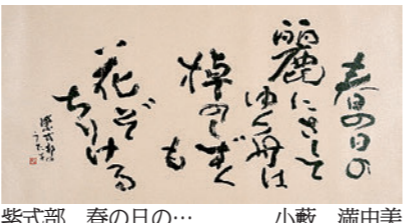 春の日の
麗にさして
ゆく舟は
棹のしずく
も
花ぞ
ちりける
紫式部
紫式部 春の日の… 小藪 満由美